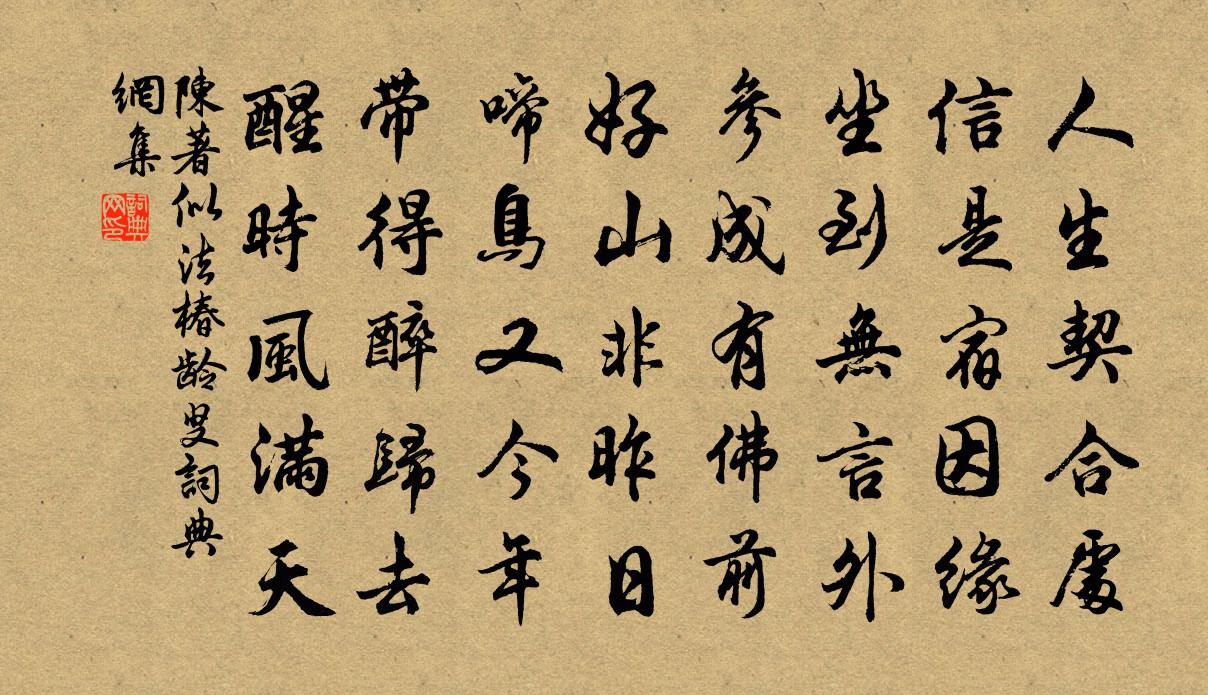 人生契合處
信是宿因緣
坐到無言外
參成有佛前
好山非昨日
啼鳥又今年
帶得醉歸去
醒時風滿天
陳著似法椿龄叟詞典
網集
詞典
网印